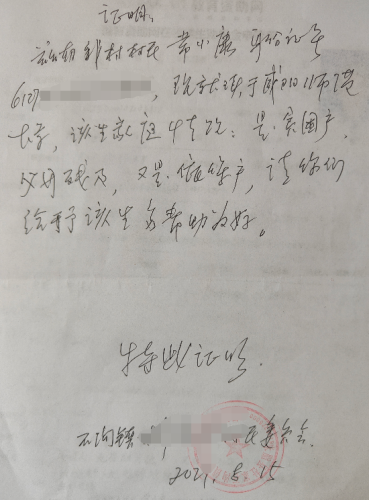 证明
兹有 村村民 常小康 身份证号
6127 ,现就读于 师范
大学,该生家庭情况:是贫困户,
父母残疾,又是低保户,请你们
给予该生多帮助为好。
特此证明.
石沟镇 民委员会.
2021.8.15